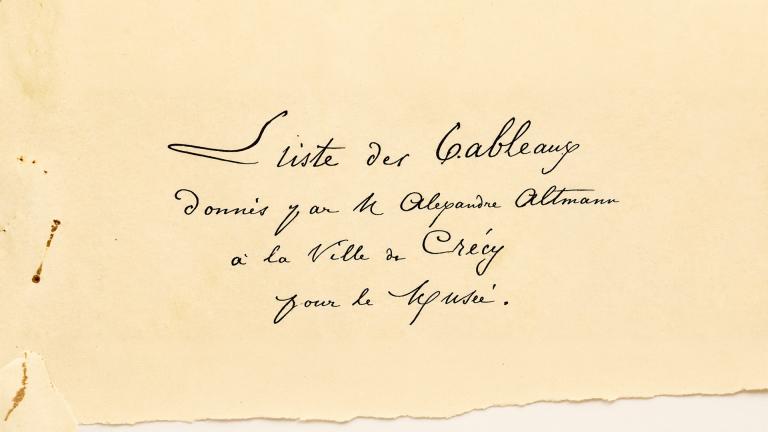 Liste des Tableaux
Donnés par M Alexandre Altmann
à la Ville de Crécy
pour le Musée.